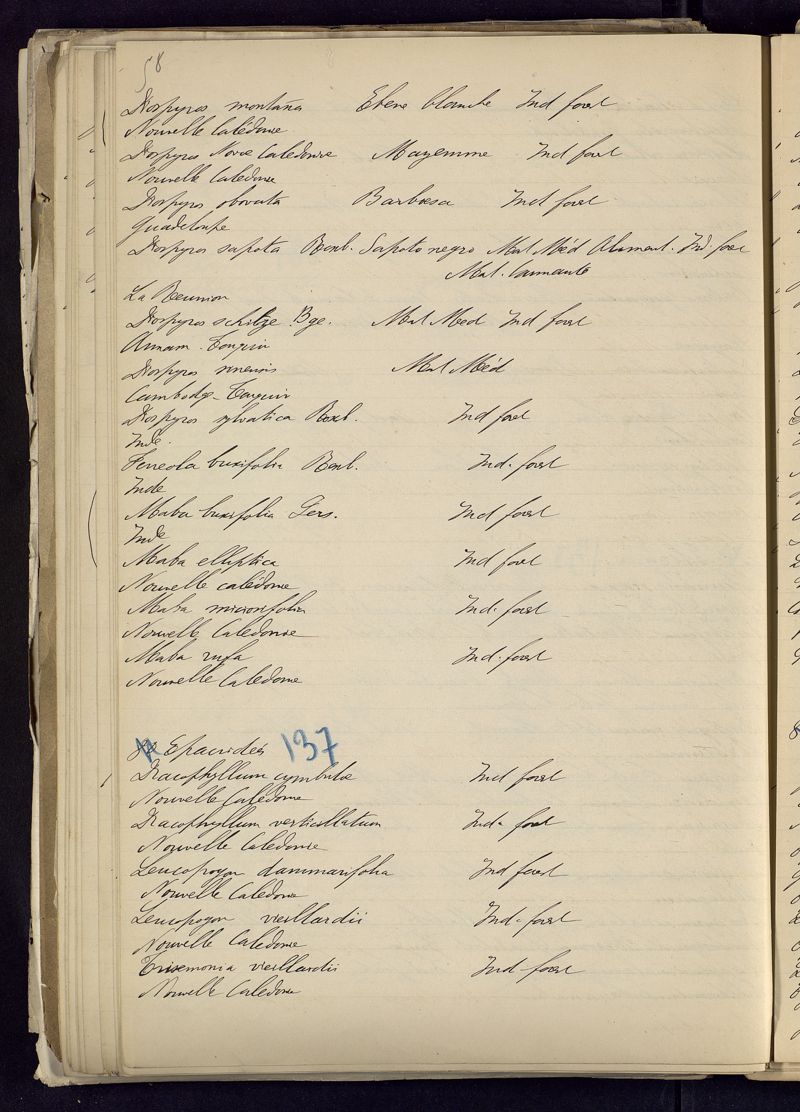 58
Diospyros montana Ebene blanche Ind forest
Nouvelle Calédonie
Diospyros Novae Caledoniae Mayemme Ind forest
Nouvelle Calédonie
Diospyros obovata Barbosa Ind forest
Guadeloupe
Diospyros sapota Roxb. Sapoto negro Mat Méd Aliment. Ind. forest
Mat. tannante
La Reunion
Diospyros schitze Bge. Mat Med Ind forest
Annam. Tonquin
Diospyros sinensis Mat Méd
Cambodge Tonquin
Diospyros sylvatica Roxb. Ind forest
Inde.
Ferreola buxifolia Roxb. Ind. forest
Inde
Maba buxifolia Pers. Ind forest
Inde
Maba elliptica Ind forest
Nouvelle calédonie
Maba Ind. forest
Nouvelle Calédonie
Maba rufa Ind. forest
Nouvelle Calédonie
Epacridés 137
Dracophyllum cymbulae Ind forest
Nouvelle Calédonie
Dracophyllum verticillatum Ind. forest
Nouvelle Calédonie
Leucopogon dammarifolia Ind forest
Nouvelle Calédonie
Leucopogon vieillardii Ind. forest
Nouvelle Calédonie
vieillardii Ind forest
Nouvelle Calédonie